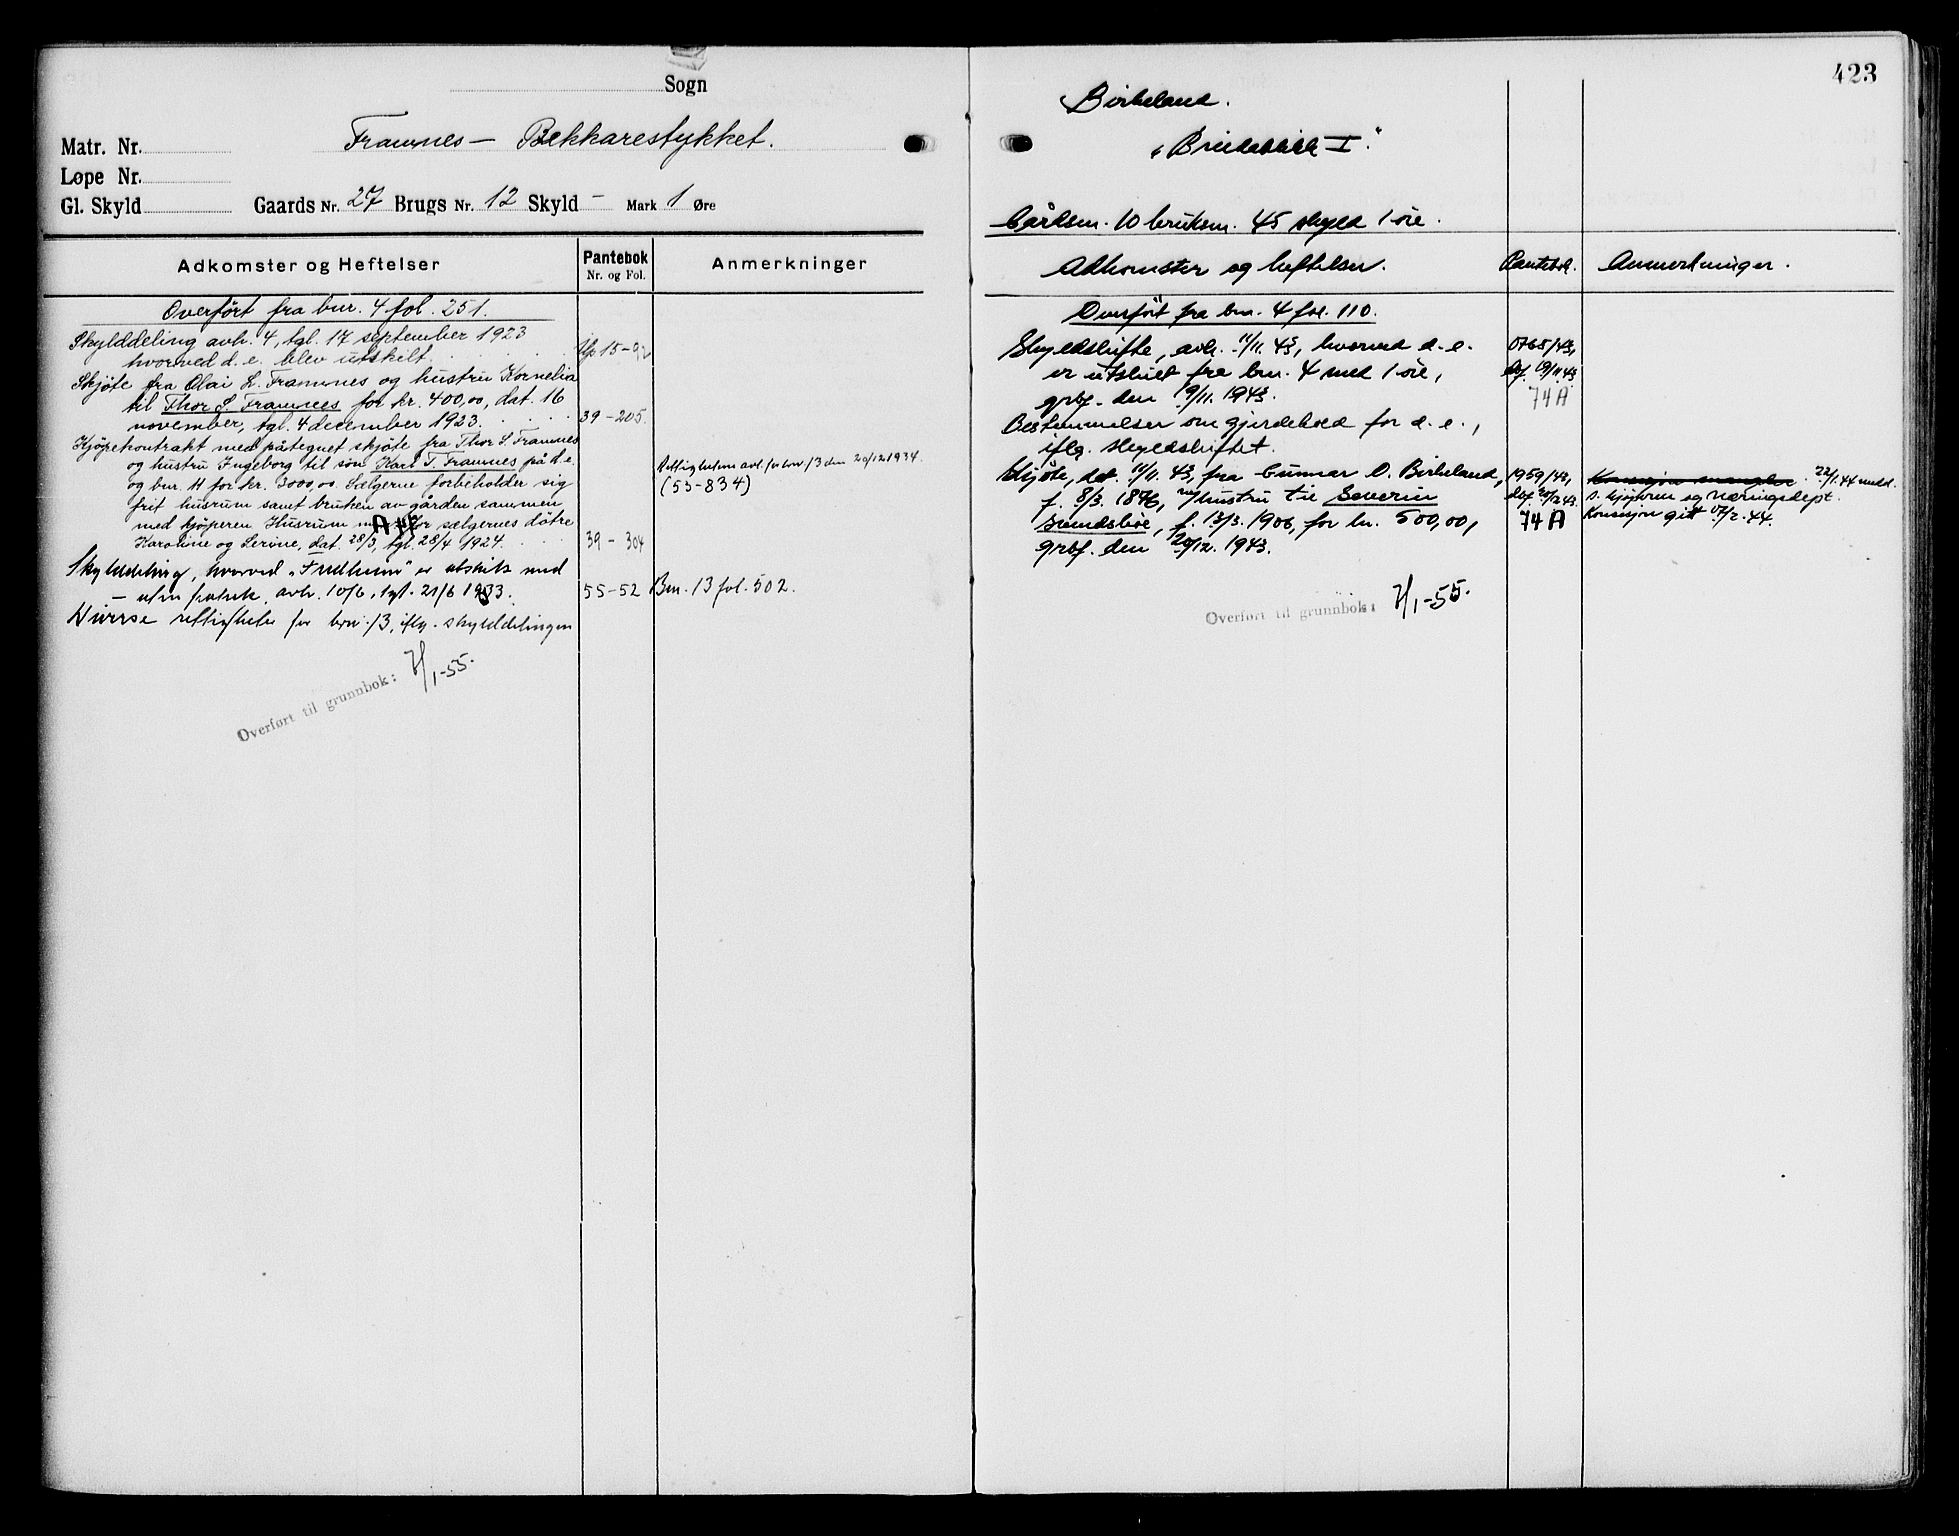 Sogn
Framnes - Bekkarestykket.
Matr. Nr.
Løpe Nr.
Gl. Skyld
Gaards Nr. 27 Brugs Nr. 12 Skyld - Mark 1 Øre
Adkomster og Heftelser
Pantebok
Nr. og Fol.
Anmerkninger
Overført fra bnr. 4 fol. 251.
Skylddeling avh. 4, tgl. 17 september 1923
hvorved d.e. blev utskilt.
Skjøte fra Olai L. Framnes og hustru Kornelia
til Thor S. Framnes for kr. 400,00, dat. 16
november, tgl. 4 december 1923. 39-205.
Kjøpekontrakt med påtegnet skjøte fra Thor S. Framnes
og hustru Ingeborg til søn Karl T. Framnes på d.e.
og bnr. 11 for kr. 3000,00. Sælgerne forbeholder sig
frit husrum samt bruken av gården sammen
med kjøperen Husrum for sælgernes døtre
Karoline og Serine, dat. 28/3, tgl. 28/4 1924. 39-304
bnr 13 den 20/12 1934.
(55-834)
Skylddeling, hvorved "Fredheim" er utskilt med
- uten frastsk. avh. 10/6, tgl. 21/6 1933. 55-52 Bnr. 13 fol. 502.
Diverse rettigheter for bnr. 13, iflg. skylddelingen
Overført til grunnbok: 7/1-55.
423
Birkeland.
I".
Gårdsnr. 10 bruksnr. 45 skyld 1 øre.
Adkomster og heftelser. Pantebok. Anmerkninger.
Overført fra bnr. 4 fol. 110.
Skyldskifte, avh. 11/11. 43, hvorved d.e.
er utskilt fra bnr. 4 med 1 øre,
grbf. den 19/11. 1943. 74 A
Bestemmelser om gjerdehold for d.e.,
iflg. skyldskiftet.
Skjøte, dat. 11/11. 43, fra Gunnar O. Birkeland, 1959/43,
f. 8/3. 1876, m/hustru til Severin
f. 13/3. 1906, for kr. 500,00, 74 A
grbf. den 20/12. 1943.
Konsesjon mangler. 22/1.44 medd.
s. kjøperen og næringsdept.
Konsesjon gitt 17/2. 44.
Overført til grunnbok: 7/1-55.